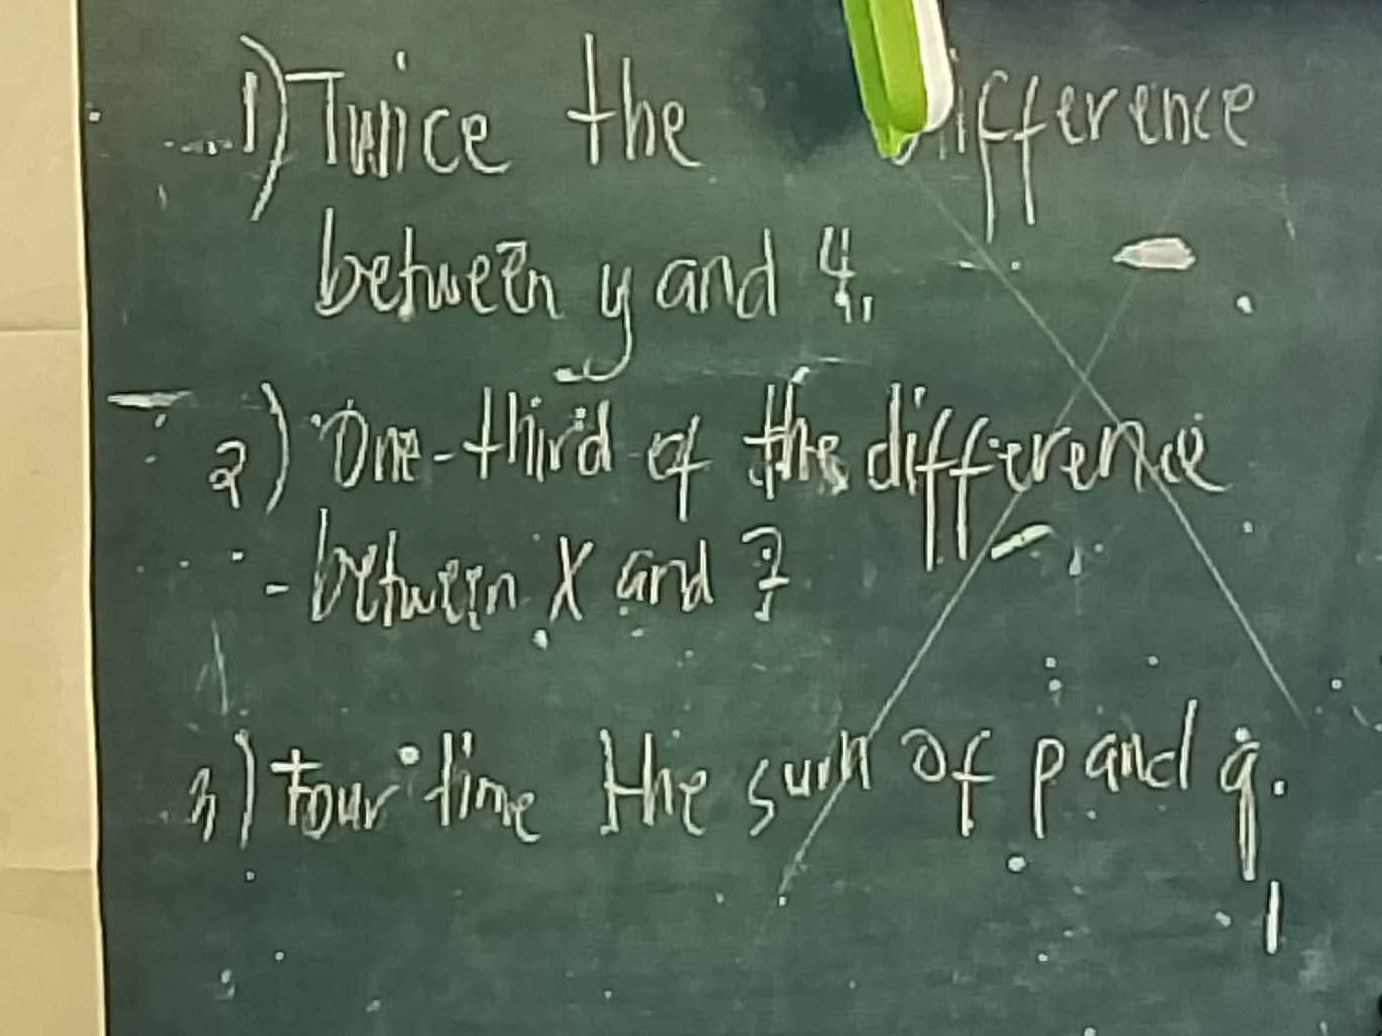 1) Twice the difference
between y and 4.
2) One-third of the difference
between x and 7
3) Four time the sum of p and q.